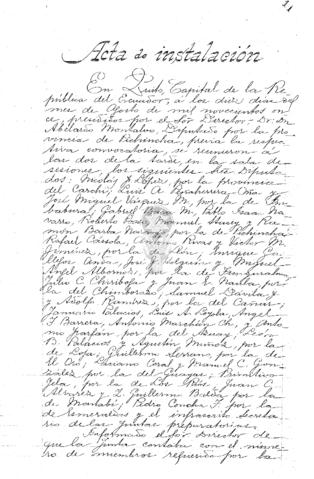 Acta de instalación
En Quito, Capital de la Re-
pública del Ecuador, a los diez días del
mes de Agosto de mil novecientos on-
ce, presididos por el Sor Director Dr. Dn
Abelardo Montalvo, Diputado por la pro-
vincia de Pichincha, previa la respec-
tiva convocatoria, se reunieron a
las dos de la tarde en la sala de
sesiones, los siguientes Diputa-
dos: Nicolás López, por la provincia
del Carchi, Luis A.
José Miguel M. por la de Im-
babura, Gabriel M. Pablo Isaac Na-
varro, Roberto y Ra-
món Barba por la de Pichincha
Rafael Antonio Rivas y Víctor M.
Jiménez, por la de León, Enrique Ga-
llejos Anda, José y Miguel
Angel Albornoz, por la de Tungurahua,
Julio C. Chiriboga y Juan por
la del Chimborazo, Manuel
y Adolfo Ramírez, por la del Cañar,
Januario Palacios, Luis A. Loyola, Angel
F. Barrera, Antonio Marchán Ch. y Anto-
nio por la del Azuay,
B. Palacios y Agustín Muñoz, por la
de Loja, Guillermo Serrano, por la de
El Oro, Coral y Manuel C. Gon-
zález, por la del Guayas,
Vela, por la de Los Ríos, Juan C.
Alvarez y L. Guillermo por la
de Manabí, Pedro Concha F. por la
de Esmeraldas y el infrascrito Secreta-
rio de las Juntas preparatorias.
Informado el Sor Director de
que la Junta contaba con el núme-
ro de miembros requerido por la